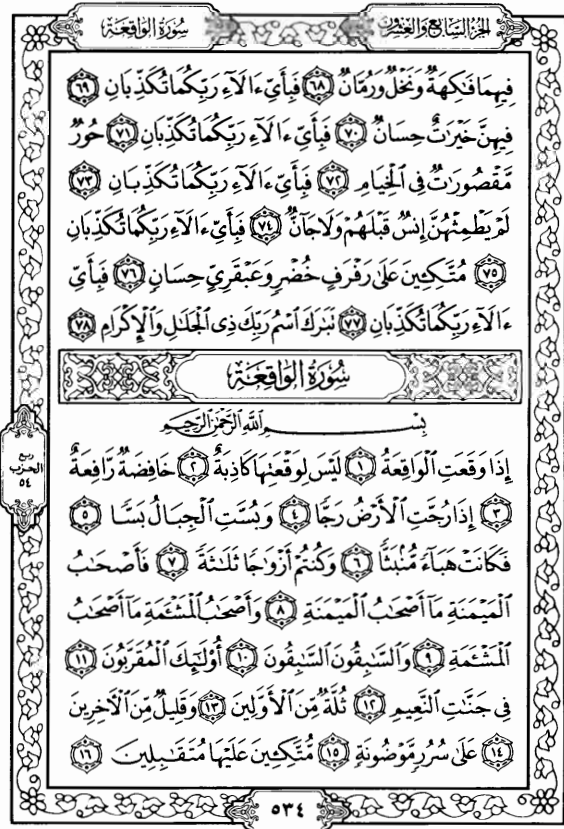 سُورَةُ الوَاقِعَة
الجُزْءُ السَّابِعُ وَالعِشْرُونَ
فِيهِمَا فَٰكِهَةٌ وَنَخْلٌ وَرُمَّانٌ ٦٨ فَبِأَيِّ ءَالَآءِ رَبِّكُمَا تُكَذِّبَانِ ٦٩
فِيهِنَّ خَيْرَٰتٌ حِسَانٌ ٧٠ فَبِأَيِّ ءَالَآءِ رَبِّكُمَا تُكَذِّبَانِ ٧١ حُورٌ
مَّقْصُورَٰتٌ فِي ٱلْخِيَامِ ٧٢ فَبِأَيِّ ءَالَآءِ رَبِّكُمَا تُكَذِّبَانِ ٧٣
لَمْ يَطْمِثْهُنَّ إِنسٌ قَبْلَهُمْ وَلَا جَآنٌّ ٧٤ فَبِأَيِّ ءَالَآءِ رَبِّكُمَا تُكَذِّبَانِ
٧٥ مُتَّكِـِٔينَ عَلَىٰ رَفْرَفٍ خُضْرٍ وَعَبْقَرِيٍّ حِسَانٍ ٧٦ فَبِأَيِّ
ءَالَآءِ رَبِّكُمَا تُكَذِّبَانِ ٧٧ تَبَٰرَكَ ٱسْمُ رَبِّكَ ذِي ٱلْجَلَٰلِ وَٱلْإِكْرَامِ ٧٨
سُورَةُ الوَاقِعَة
بِسْمِ ٱللَّهِ ٱلرَّحْمَٰنِ ٱلرَّحِيمِ
إِذَا وَقَعَتِ ٱلْوَاقِعَةُ ١ لَيْسَ لِوَقْعَتِهَا كَاذِبَةٌ ٢ خَافِضَةٌ رَّافِعَةٌ
٣ إِذَا رُجَّتِ ٱلْأَرْضُ رَجًّا ٤ وَبُسَّتِ ٱلْجِبَالُ بَسًّا ٥
فَكَانَتْ هَبَآءً مُّنۢبَثًّا ٦ وَكُنتُمْ أَزْوَٰجًا ثَلَٰثَةً ٧ فَأَصْحَٰبُ
ٱلْمَيْمَنَةِ مَآ أَصْحَٰبُ ٱلْمَيْمَنَةِ ٨ وَأَصْحَٰبُ ٱلْمَشْـَٔمَةِ مَآ أَصْحَٰبُ
ٱلْمَشْـَٔمَةِ ٩ وَٱلسَّٰبِقُونَ ٱلسَّٰبِقُونَ ١٠ أُو۟لَٰٓئِكَ ٱلْمُقَرَّبُونَ ١١
فِي جَنَّٰتِ ٱلنَّعِيمِ ١٢ ثُلَّةٌ مِّنَ ٱلْأَوَّلِينَ ١٣ وَقَلِيلٌ مِّنَ ٱلْءَاخِرِينَ
١٤ عَلَىٰ سُرُرٍ مَّوْضُونَةٍ ١٥ مُّتَّكِـِٔينَ عَلَيْهَا مُتَقَٰبِلِينَ ١٦
ربع
الحزب
٥٤
٥٣٤